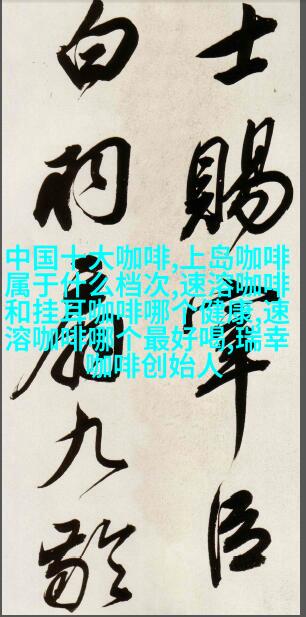 士賜宰臣
白羽扇九齡
中国十大咖啡,上岛咖啡
属于什么档次,速溶咖啡
和挂耳咖啡哪个健康,速
溶咖啡哪个最好喝,瑞幸
咖啡创始人